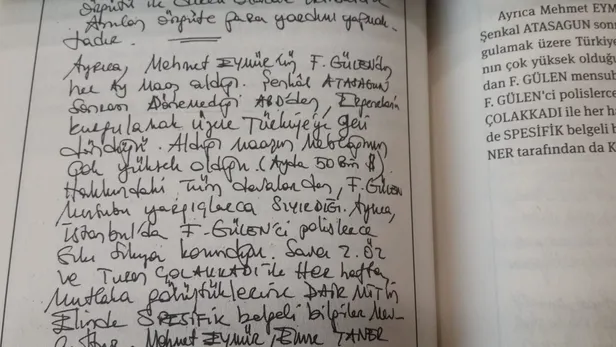 örgütü ile
Anılan örgüte para yardımı yapmak-
tadır.
Ayrıca, Mehmet EYMÜR'ün F. GÜLEN'den
her Ay Maaş aldığı. Şenkal ATASAGUN
Sonrası Dönemde ABD'den, Ergenekon'u
kurgulamak üzere Türkiye'ye geri
döndüğü. Aldığı maaşın meblağının
Çok yüksek olduğu. (Ayda 50 Bin $)
Hakkındaki Tüm davalardan, F. GÜLEN
Mensubu yargıçlarca SIYIRDIĞI. Ayrıca,
İstanbul'da F. GÜLEN'ci polislerce
Sıkı korunduğu. Savcı Z. ÖZ
ve Turan ÇOLAKKADI ile Her hafta
Mutlaka görüştüklerine DAİR MİT'in
Elinde SPESİFİK belgeli bilgiler Mev-
Mehmet EYMÜR, Emre TANER
Ayrıca Mehmet EYM
Şenkal ATASAGUN son
gulamak üzere Türkiye
nın çok yüksek olduğu
dan F. GÜLEN mensub
F. GÜLEN'ci polislerce
ÇOLAKKADI ile her ha
de SPESİFİK belgeli b
NER tarafından da K